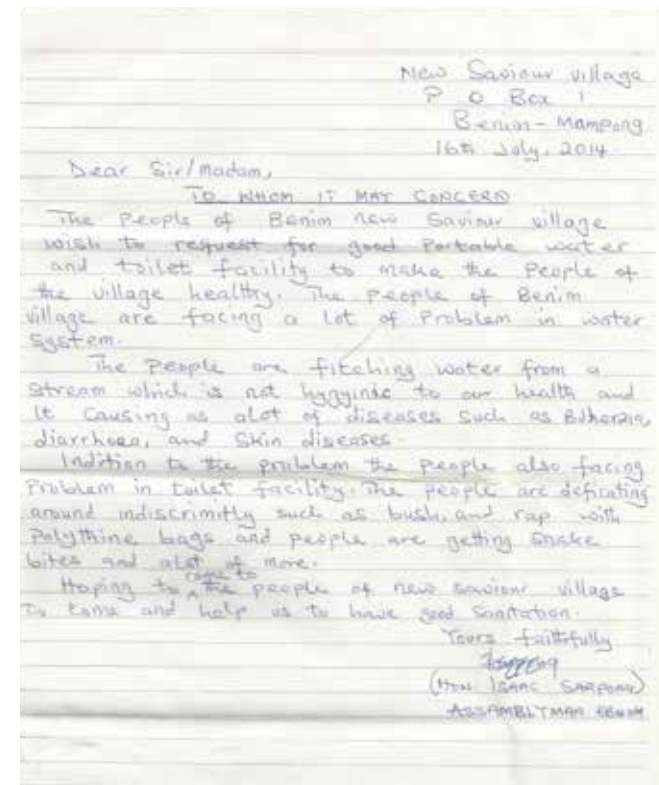 New Saviour village
P O Box 1
Benim - Mampong
16th July, 2014
Dear Sir/madam,
TO WHOM IT MAY CONCERN
The People of Benim new Saviour village
wish to request for good Portable water
and toilet facility to make the People of
the village healthy. The People of Benim
village are facing a lot of Problem in water
System.
The People are fitching water from a
stream which is not hygyinic to our health and
It Causing as alot of diseases Such as Bilharzia,
diarrhoea, and Skin diseases.
Indition to the problem the People also facing
Problem in toilet facility. The People are deficating
around indiscrimitly such as bush, and rap with
Polythine bags and people are getting Snake
bites and alot of more.
come to
Hoping to the people of new saviour village
to come and help us to have good Sanitation.
Yours faithfully
(HON ISAAC SARPONG)
ASSAMBLYMAN